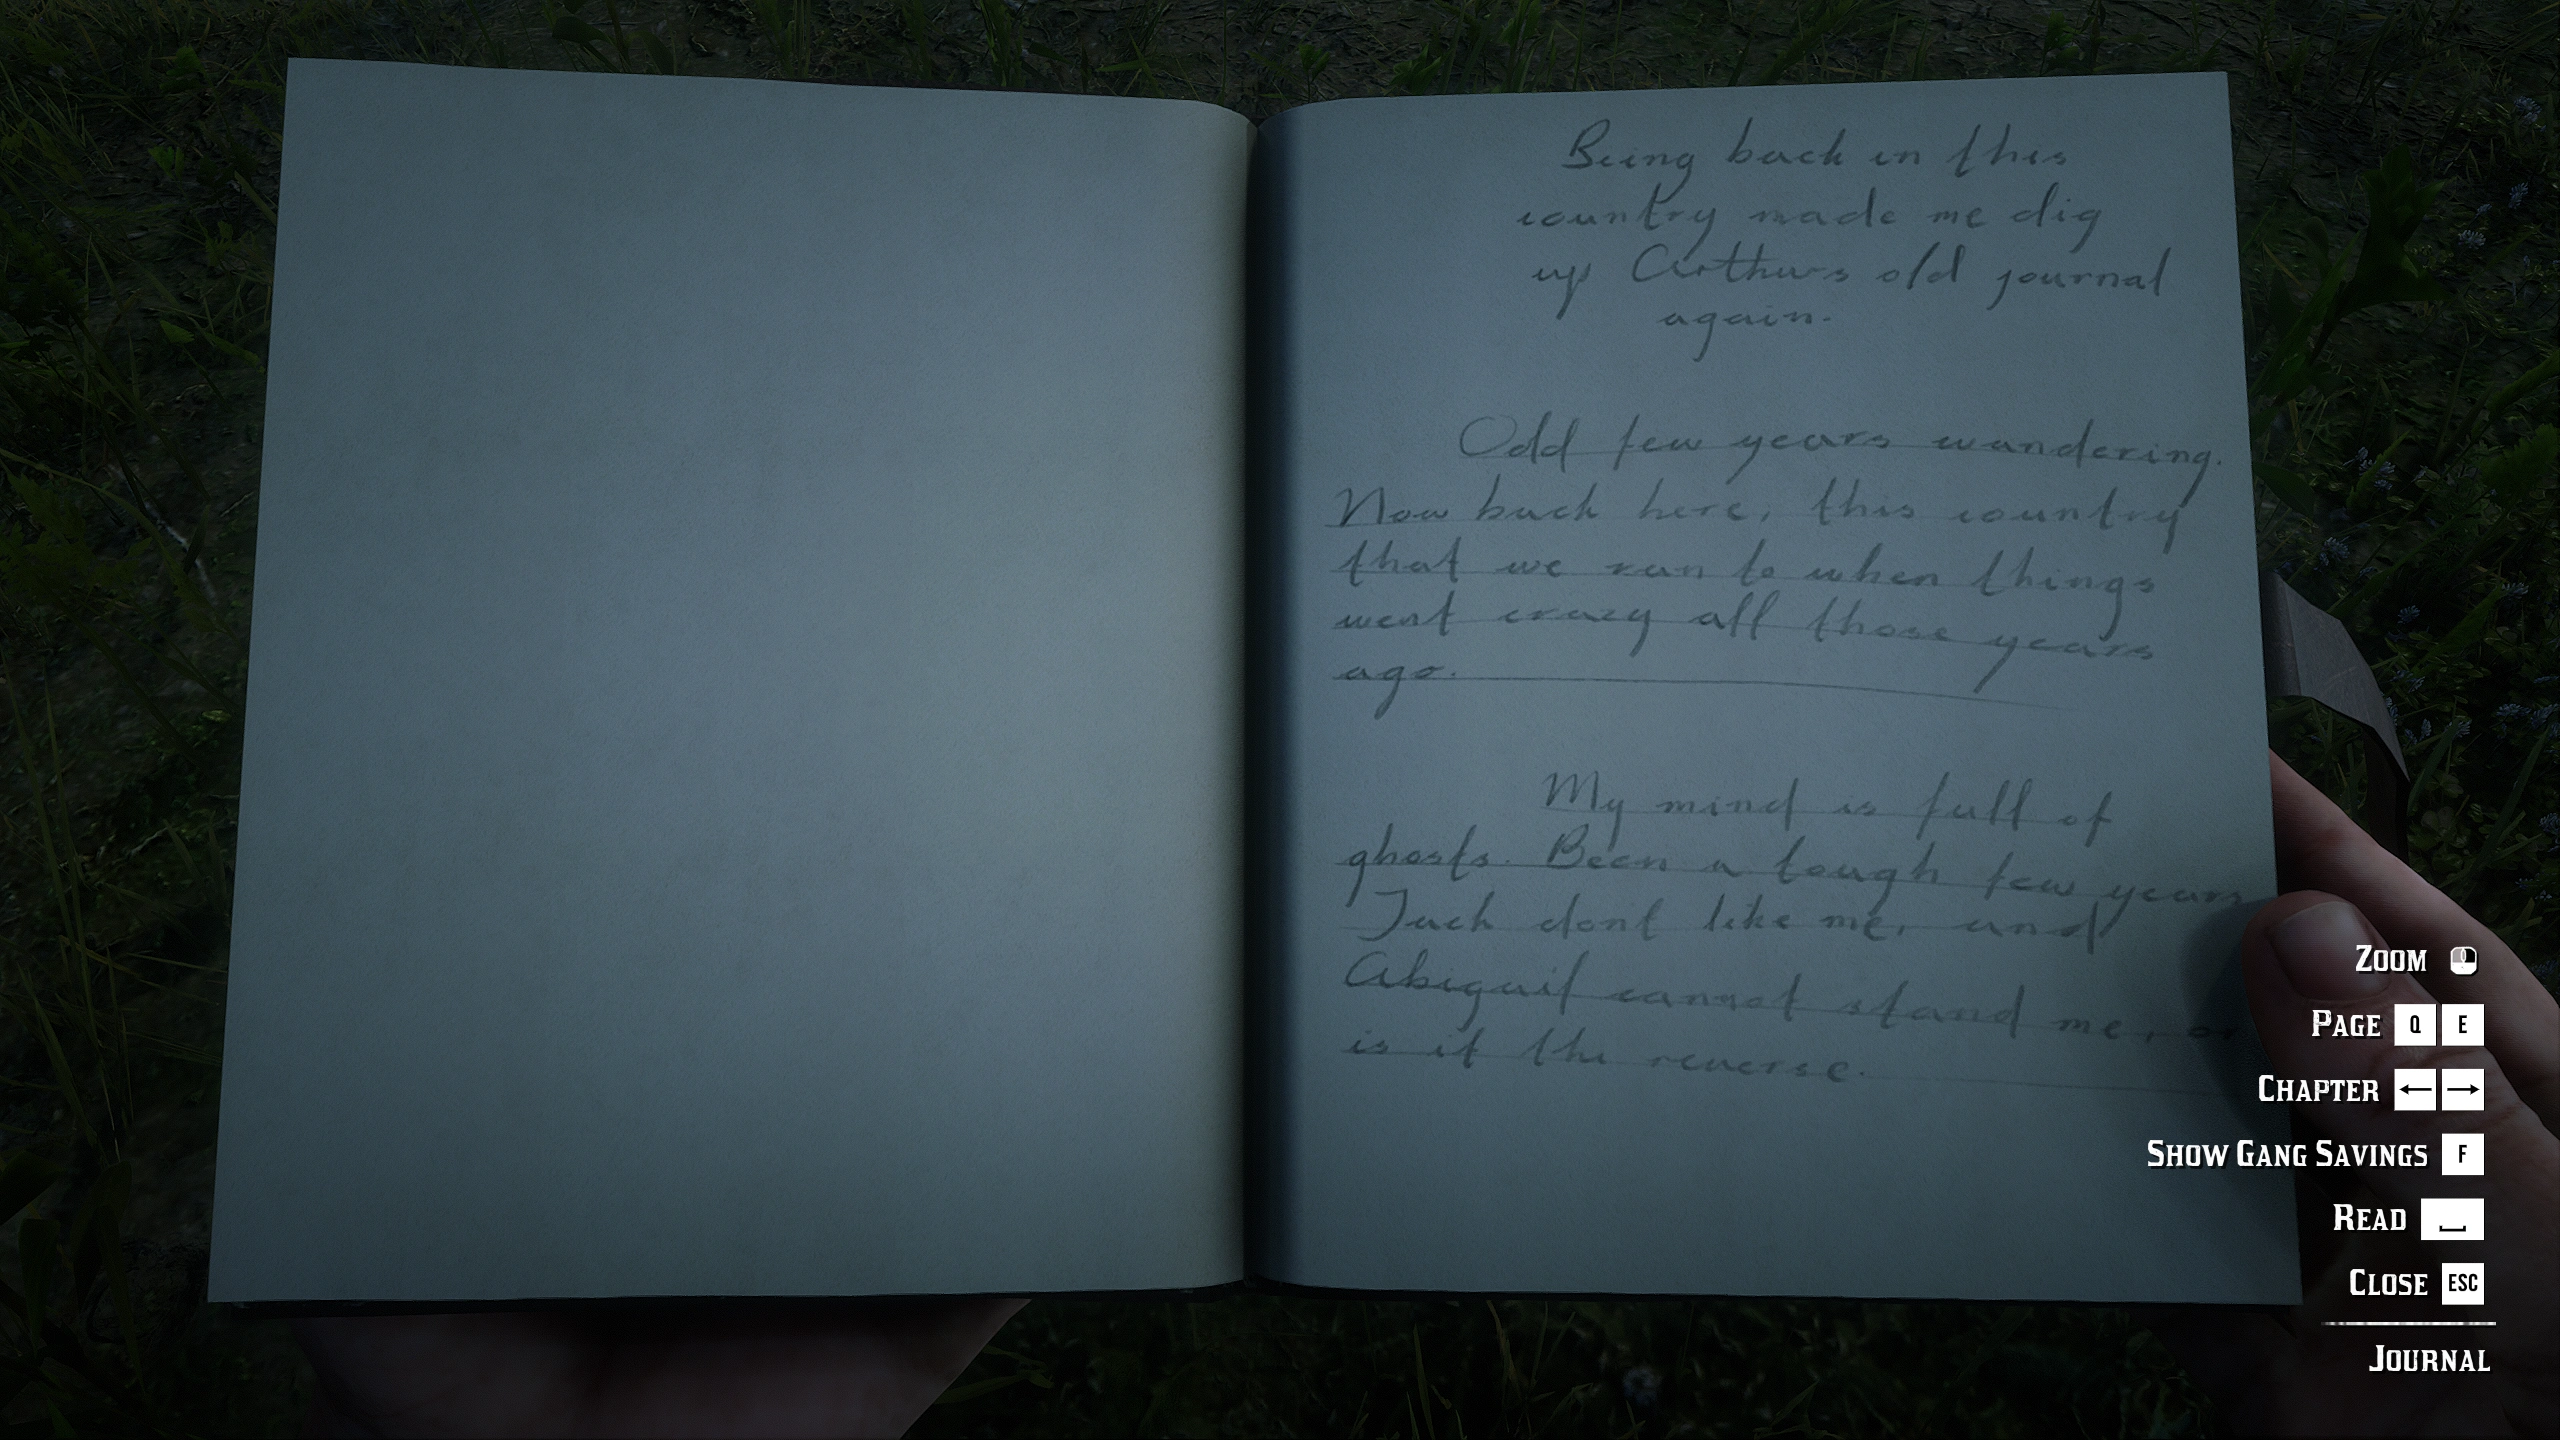 Being back in this
country made me dig
up Arthurs old journal
again.
Odd few years wandering.
Now back here, this country
that we ran to when things
went crazy all those years
ago.
My mind is full of
ghosts. Been a tough few years
Jack dont like me, and
Abigail cannot stand me, or
is it the reverse.
ZOOM
PAGE Q E
CHAPTER ← →
SHOW GANG SAVINGS F
READ
CLOSE ESC
JOURNAL